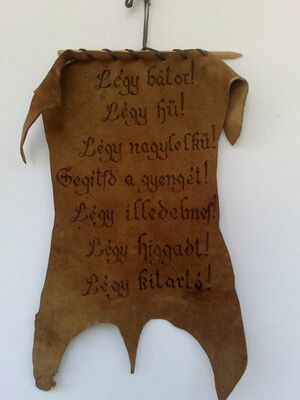 Légy bátor!
Légy hű!
Légy nagylelkű!
Segítsd a gyengét!
Légy illedelmes!
Légy higgadt!
Légy kitartó!